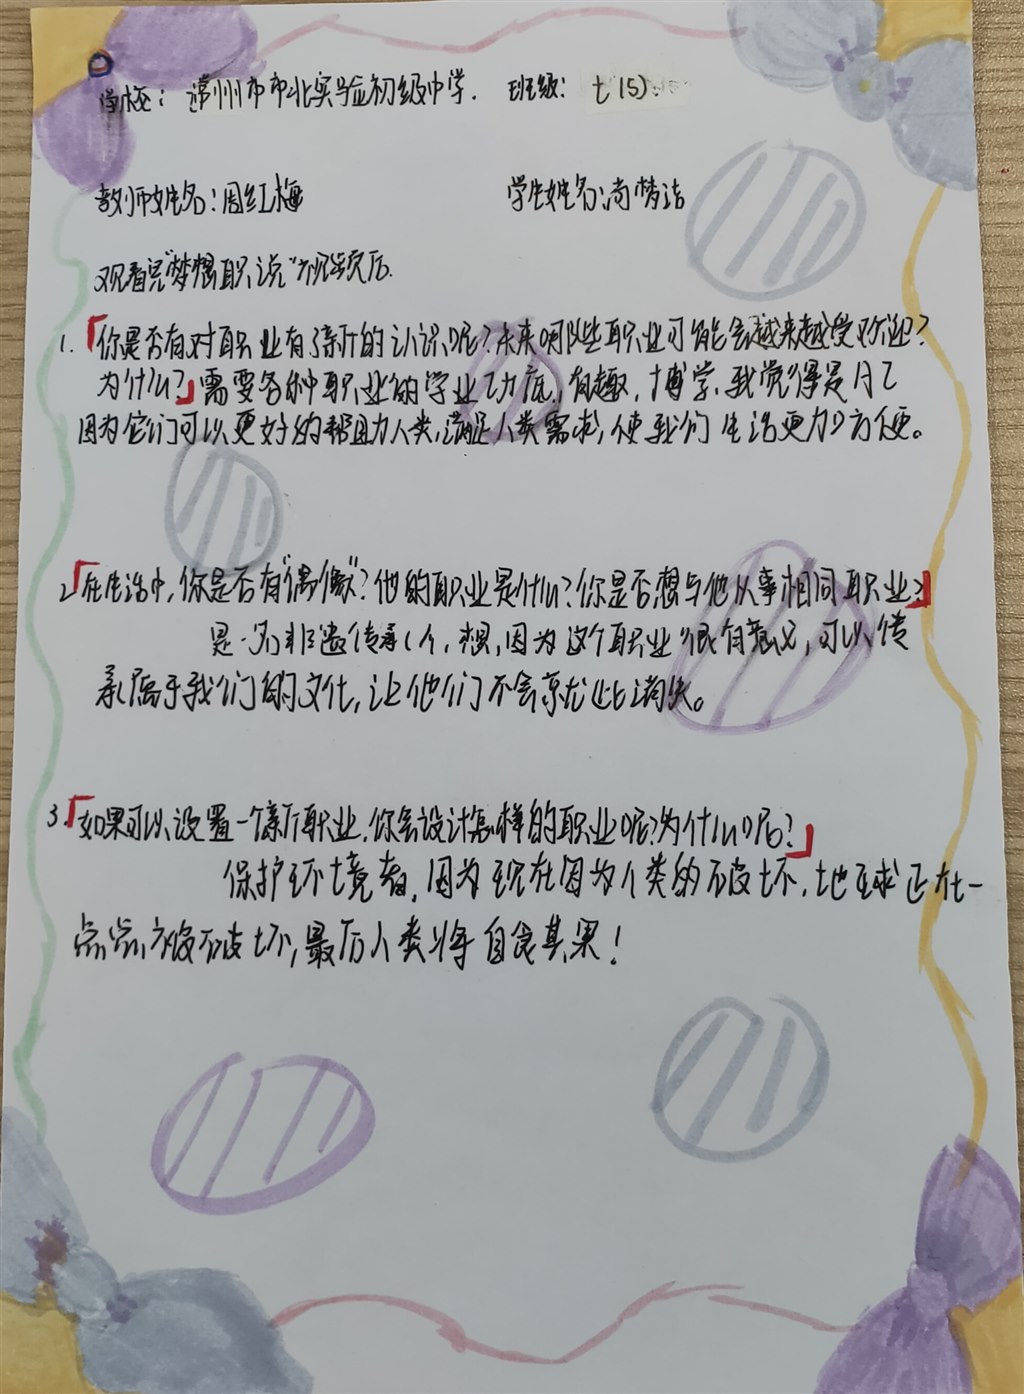 学校：常州市市北实验初级中学. 班级：七(5).
教师姓名：周红梅 学生姓名：尚梦洁
观看完“梦想职说”视频后.
1.「你是否有对职业有了新的认识呢？未来哪些职业可能会越来越受欢迎？
为什么？」需要各种职业的学业功底，有趣，博学，我觉得是
因为它们可以更好的帮助人类，满足人类需求，使我们生活更加方便。
2.「在生活中，你是否有“偶像”？他的职业是什么？你是否想与他从事相同职业？」
是一名非遗传承人，想，因为这个职业很有意义，可以传
承属于我们的文化，让他们不会就此消失。
3.「如果可以设置一个新职业，你会设计怎样的职业呢？为什么呢？」
保护环境者，因为现在因为人类的破坏，地球正在一
点点被破坏，最后人类将自食其果！